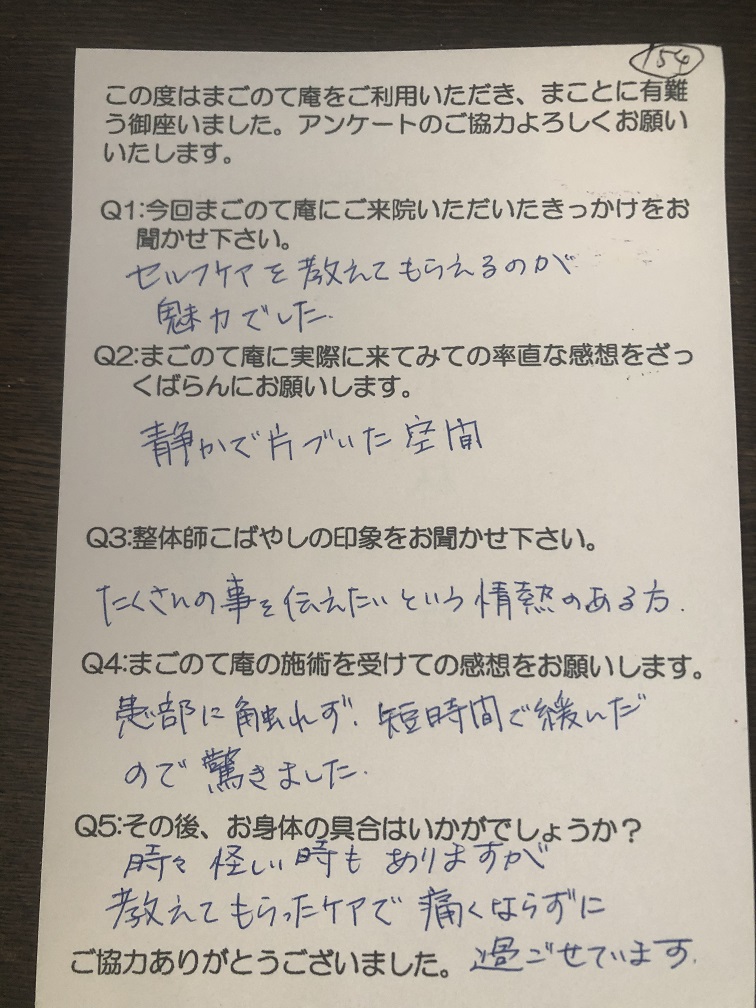 154
この度はまごのて庵をご利用いただき、まことに有難
う御座いました。アンケートのご協力よろしくお願い
いたします。
Q1:今回まごのて庵にご来院いただいたきっかけをお
聞かせ下さい。
セルフケアを教えてもらえるのが
魅力でした.
Q2:まごのて庵に実際に来てみての率直な感想をざっ
くばらんにお願いします。
静かで片づいた空間
Q3:整体師こばやしの印象をお聞かせ下さい。
たくさんの事を伝えたいという情熱のある方.
Q4:まごのて庵の施術を受けての感想をお願いします。
患部に触れず、短時間で緩んだ
ので驚きました.
Q5:その後、お身体の具合はいかがでしょうか?
時々怪しい時もありますが
教えてもらったケアで痛くならずに
ご協力ありがとうございました。過ごせています.